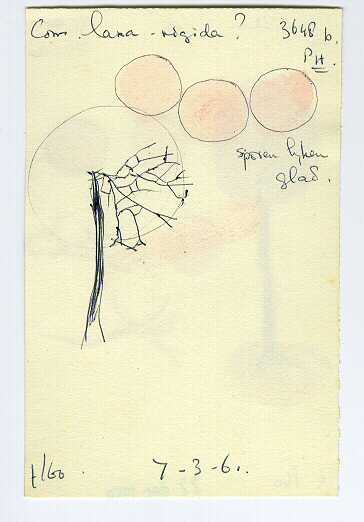 Com. lana-rigida? 3648 b.
PH.
sporen lijken
glad.
t/60. 7-3-61.